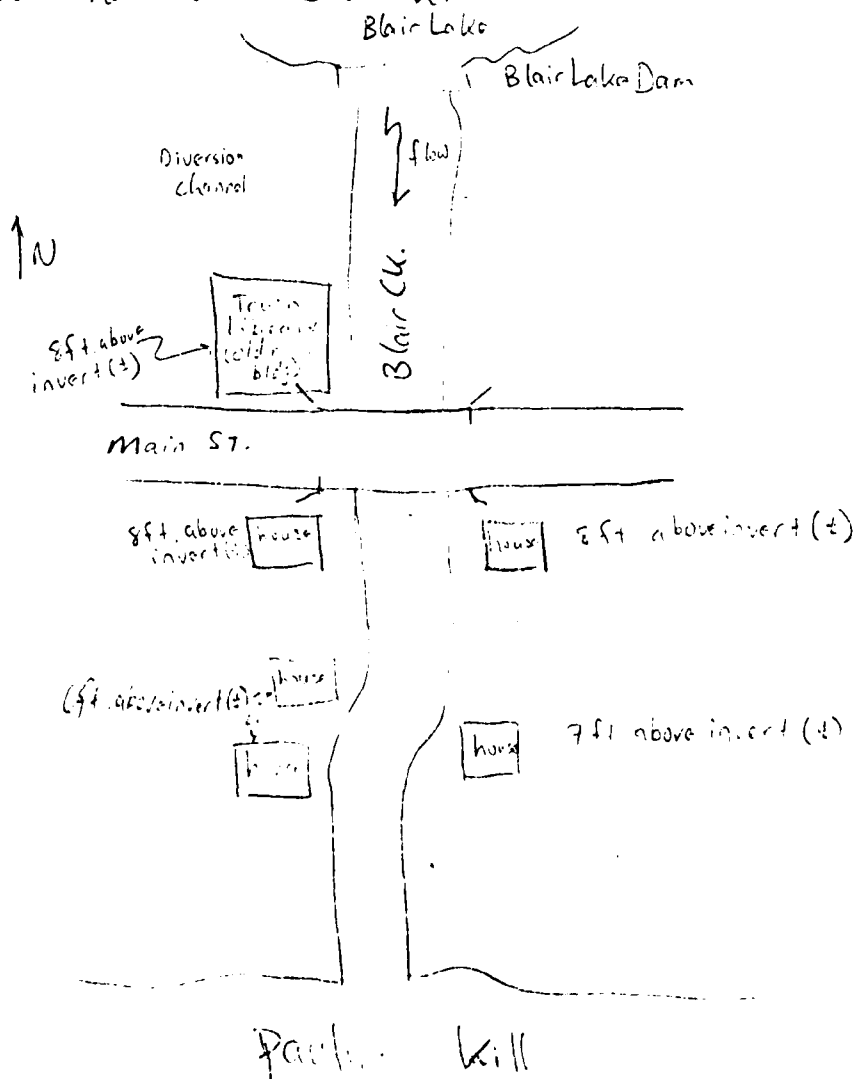 Blair Lake
Blair Lake Dam
flow
Diversion
channel
N
Blair Ck.
Town
bldg)
8ft. above
invert(±)
Main ST.
8ft. above
invert
house
house
8ft above invert (±)
house
6ft. above invert(±)
house
house
7ft above invert (±)
Kill